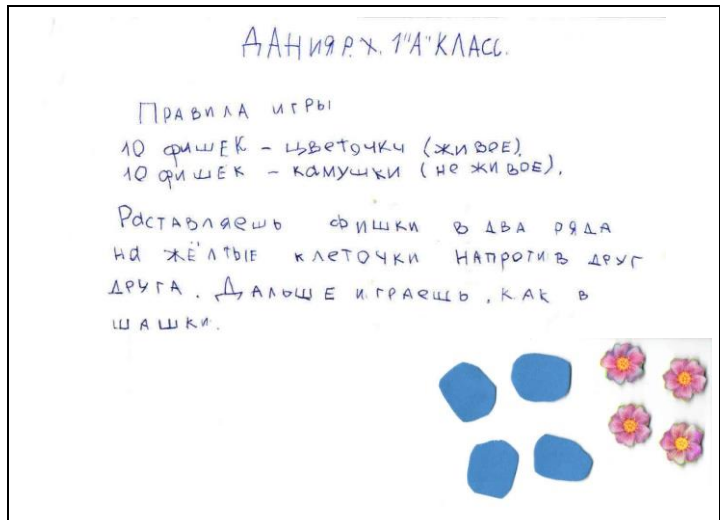 ДАНИЯР.Х. 1"А"КЛАСС.
ПРАВИЛА ИГРЫ
10 ФИШЕК – ЦВЕТОЧКИ (ЖИВОЕ).
10 ФИШЕК – КАМУШКИ (НЕ ЖИВОЕ).
РАСТАВЛЯЕШЬ ФИШКИ В ДВА РЯДА
НА ЖЁЛТЫЕ КЛЕТОЧКИ НАПРОТИВ ДРУГ
ДРУГА. ДАЛЬШЕ ИГРАЕШЬ, КАК В
ШАШКИ.